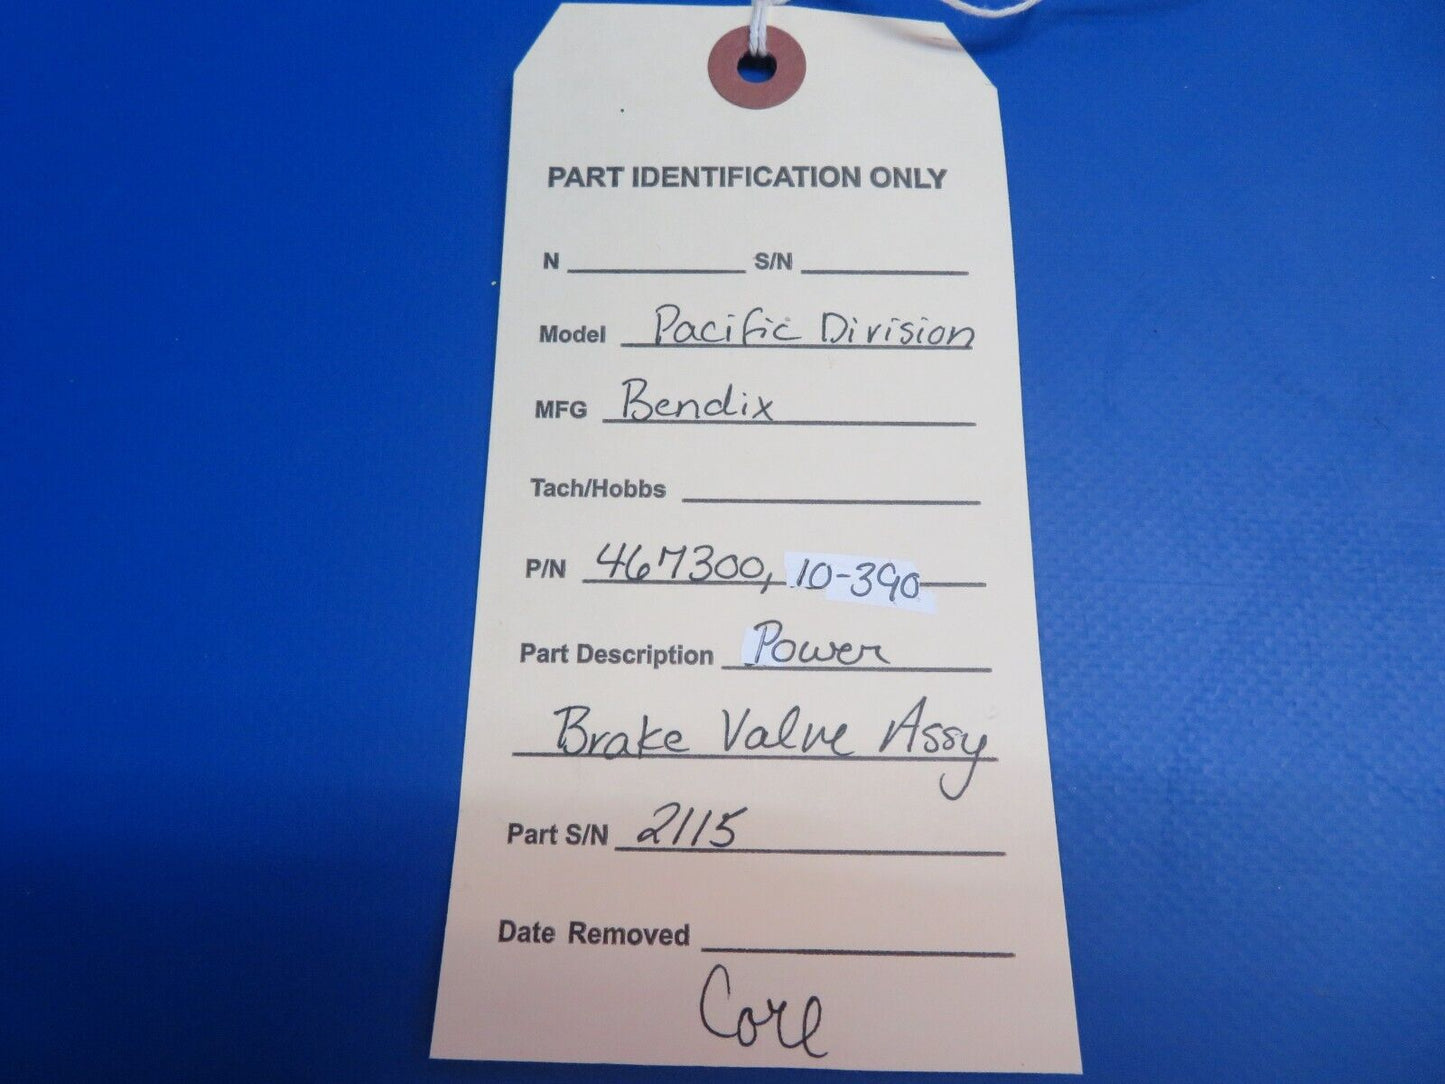 PART IDENTIFICATION ONLY
N S/N
Model Pacific Division
MFG Bendix
Tach/Hobbs
P/N 467300, 10-390
Part Description Power
Brake Valve Assy
Part S/N 2115
Date Removed
Core